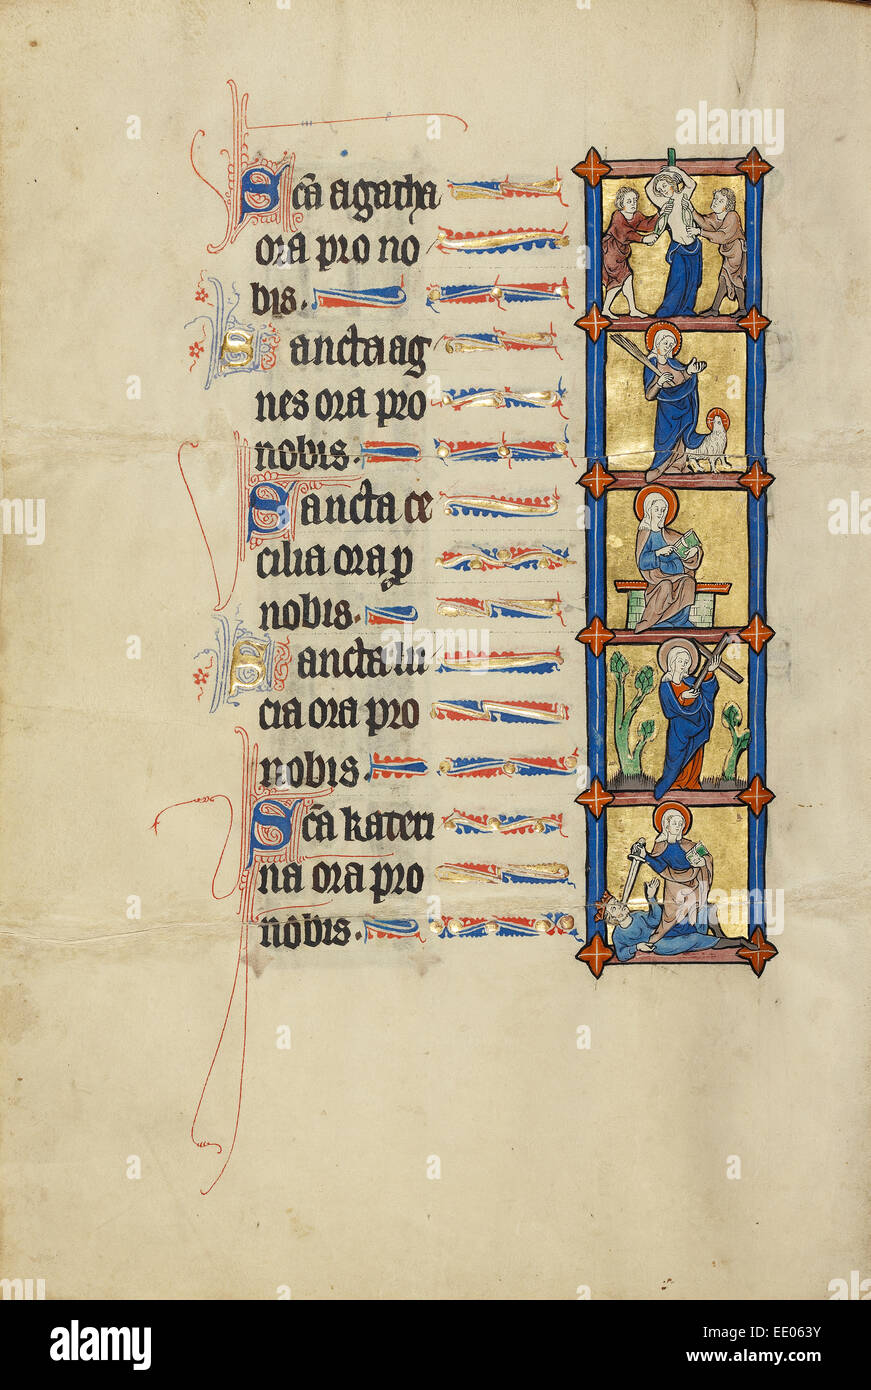 Sc̄a agatha
ora pro no
bis.
Sancta ag
nes ora pro
nobis.
Sancta ce
cilia ora p
nobis.
Sancta lu
cia ora pro
nobis.
Sc̄a kateri
na ora pro
nobis.
alamy
Image ID: EE063Y
www.alamy.com